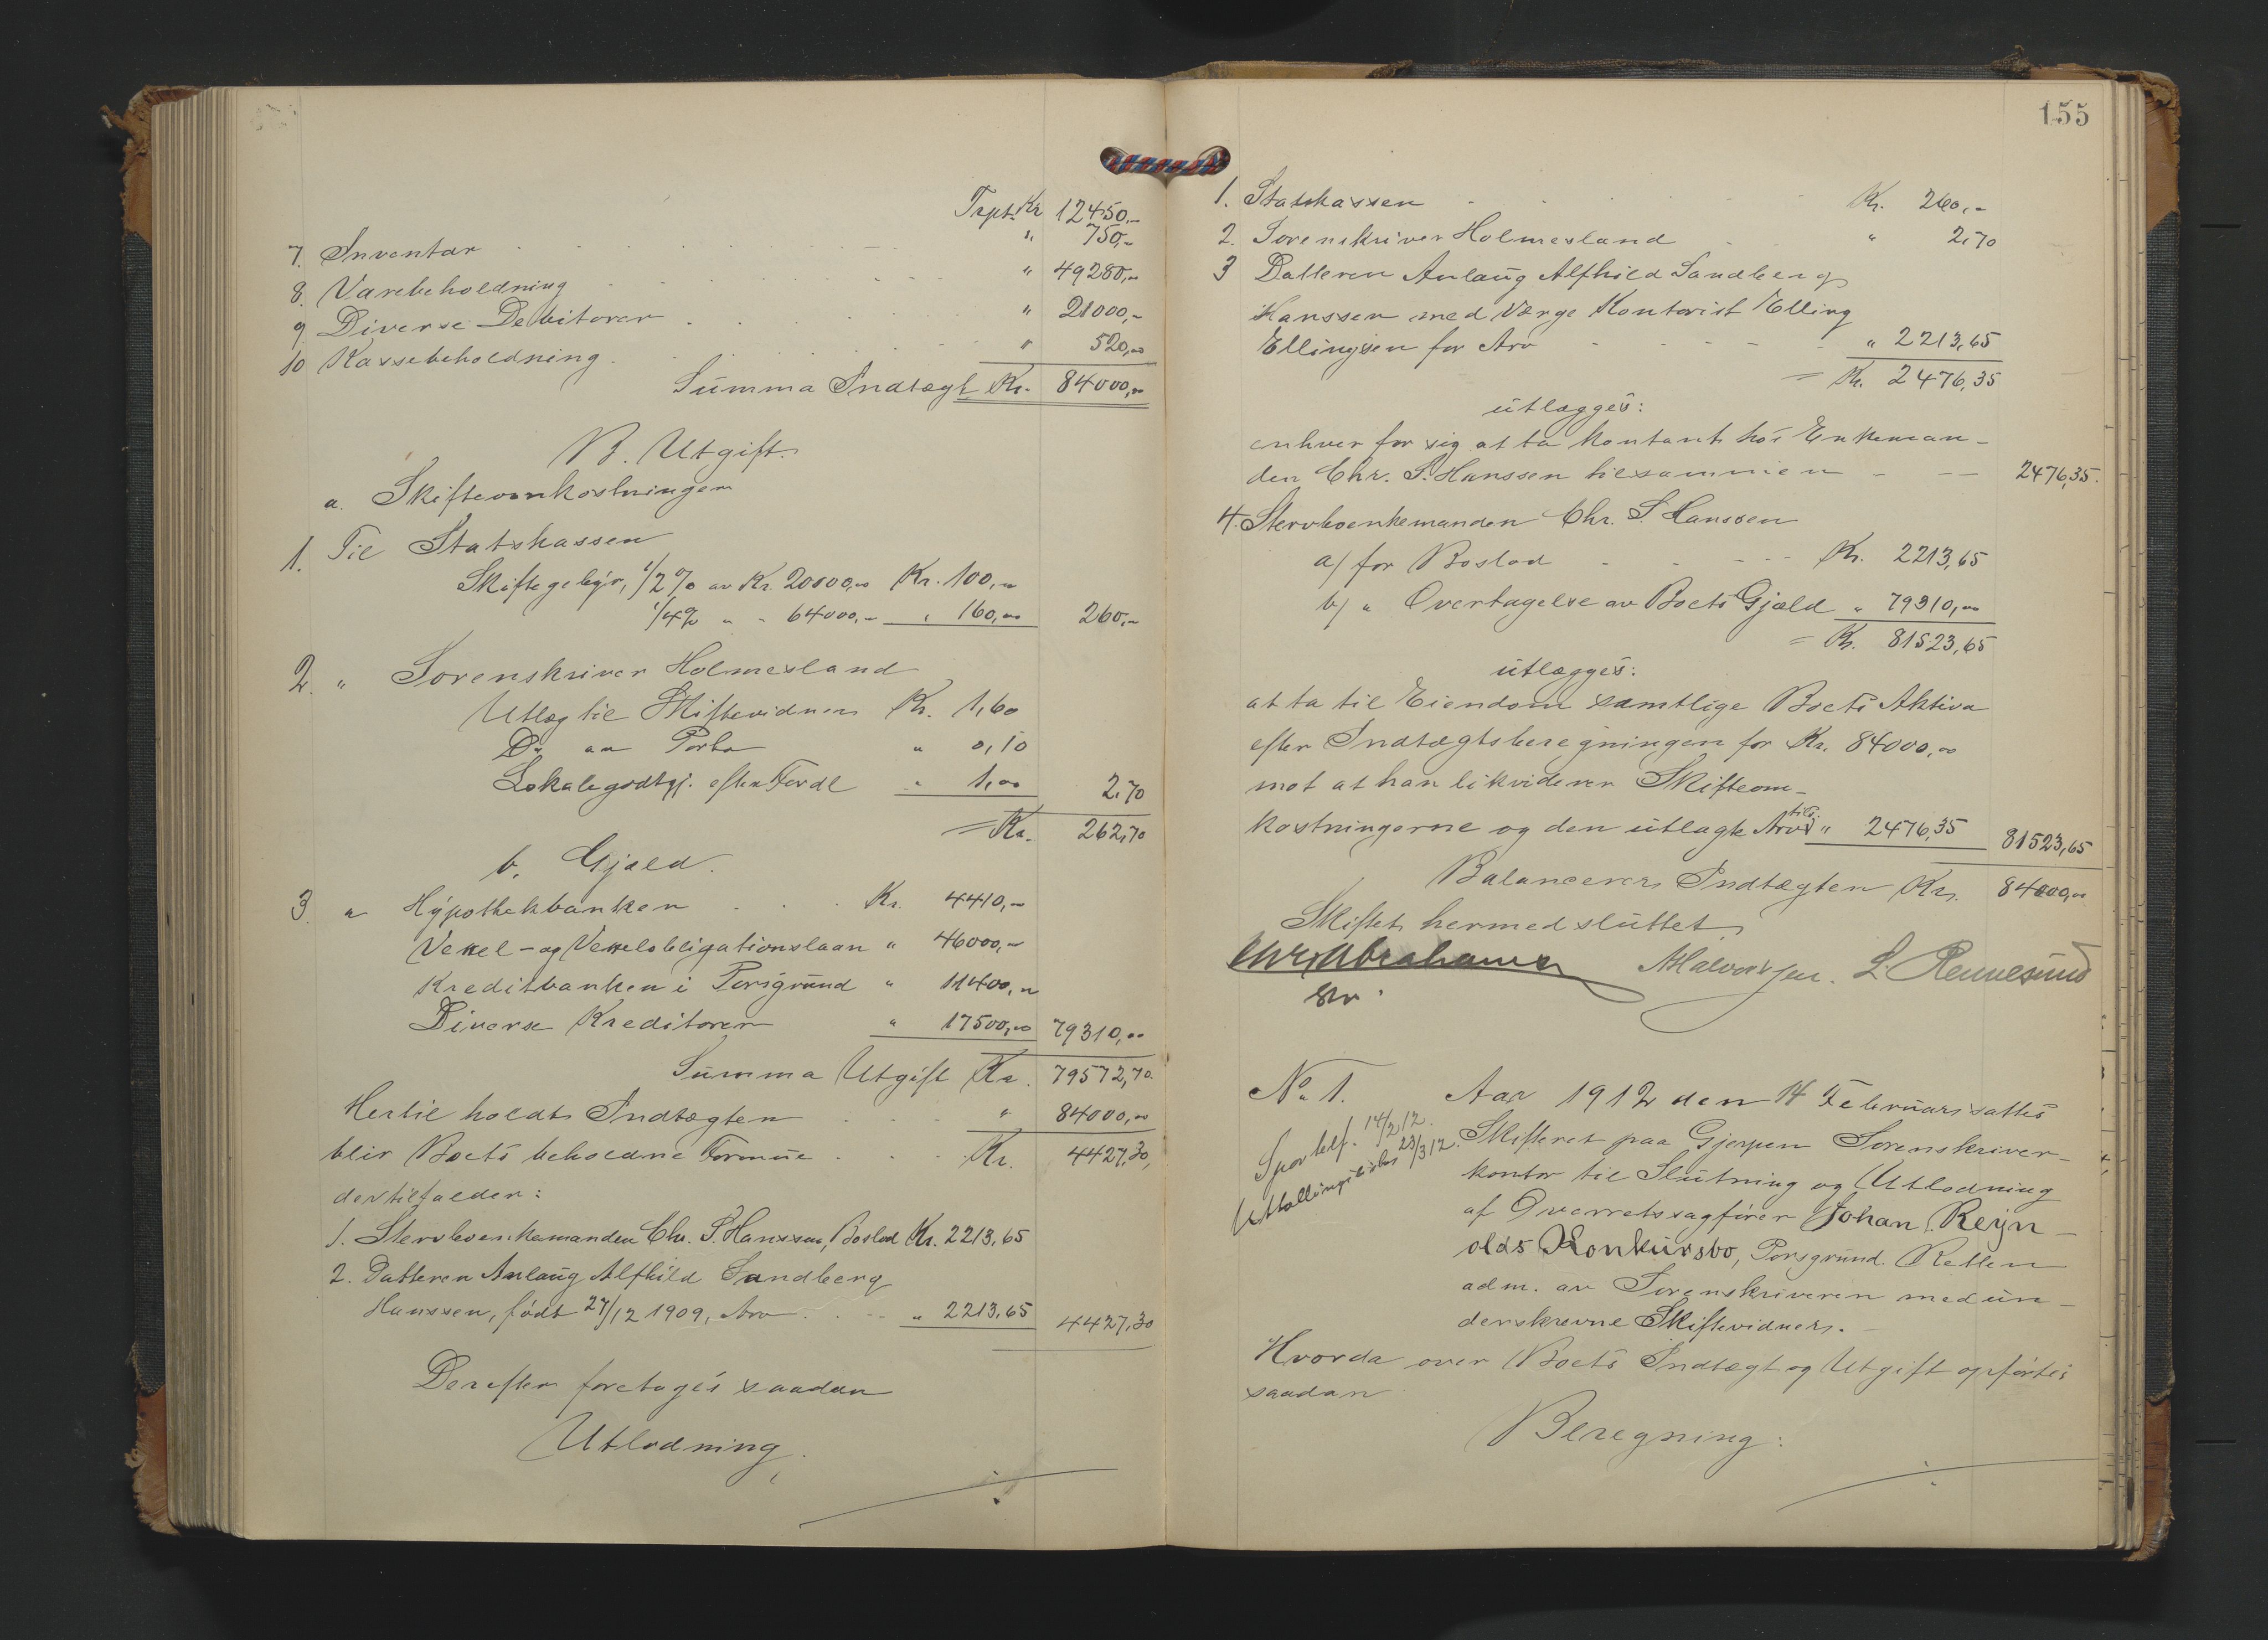 Trpt. Kr. 12450,-
7. Inventar " 750,-
8. Varebeholdning " 49280,-
9. Diverse Debitorer " 21000,-
10 Kassebeholdning " 520,00
Summa Indtægt Kr. 84000,00
B. Utgift.
a. Skifteomkostninger
1. Til Statskassen
Skiftegebyr, 1/2 % av Kr. 20000,00 Kr. 100,00
1/4% " " 64000,- " 160,00 260,-
2. " Sorenskriver Holmesland
Utlæg til Skiftevidner Kr. 1,60
Do an Porto " 0,10
Lokalegodtgj. efter Fordl " 1,00 2,70
= Kr. 262,70
b. Gjæld.
3. " Hypothekbanken Kr. 4410,-
Vexel- og Vexelobligationslaan " 46000,-
Kreditbanken i Porsgrund " 11400,00
Diverse Kreditorer " 17500,00 79310,00
Summa Utgift Kr. 79572,70.
Hertil holdt Indtægten " 84000,00
blir Boets beholdne Formue Kr. 4427,30,
der tilfalder:
1. Stervboenkemanden Chr. S. Hanssen, Boslod Kr. 2213,65
2. Datteren Anlaug Alfhild Sandberg
Hanssen, født 27/12 1909, Arv " 2213,65 4427,30
Derefter foretoges saadan
Utlodning.
155
1. Statskassen Kr. 260,-
2. Sorenskriver Holmesland " 2,70
3 Datteren Anlaug Alfhild Sandberg
Hanssen med Værge Kontorist Elling
Ellingsen for Arv " 2213,65
= Kr. 2476,35
utlægges:
enhver for sig at ta kontant hos Enkeman-
den Chr. S. Hanssen tilsammen 2476,35.
4. Stervboenkemanden Chr. S. Hanssen
a) for Boslod Kr. 2213,65
b) " Overtagelse av Boets Gjæld " 79310,00
= Kr. 81523,65
utlægges:
at ta til Eiendom samtlige Boets Aktiva
efter Indtægtsberegningen for Kr. 84000,00
mot at han likviderer Skifteom-
kostningerne og den utlagte Arv tils. " 2476,35 81523,65
Balancerer Indtægten Kr. 84000,00
Skiftet hermed sluttet
Chr. Abrahamsen Halvorsen. L. Rennesund
No 1. Aar 1912 den 14 Februar sattes
Sportelf. 14/2 12. Skifteret paa Gjerpen Sorenskriver-
23/3 12. kontor til Slutning og Utlodning
af Overretssagfører Johan Reyn-
olds Konkursbo, Porsgrund. Retten
adm. av Sorenskriveren med un-
derskrevne Skiftevidner.
Hvorda over Boets Indtægt og Utgift opførtes
saadan
Beregning: